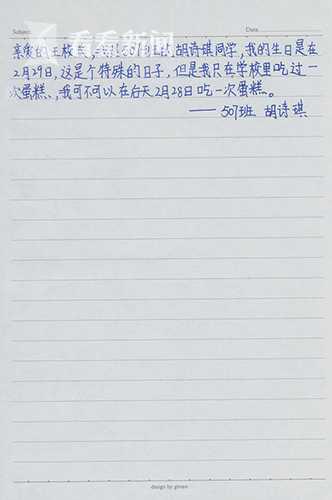 Subject:
Date
看看新闻
亲爱的王校长,我是507班的胡诗琪同学,我的生日是在
2月29日,这是个特殊的日子,但是我只在学校里吃过一
次蛋糕、,我可不可以在后天2月28日吃一次蛋糕。
——507班 胡诗琪
design by green